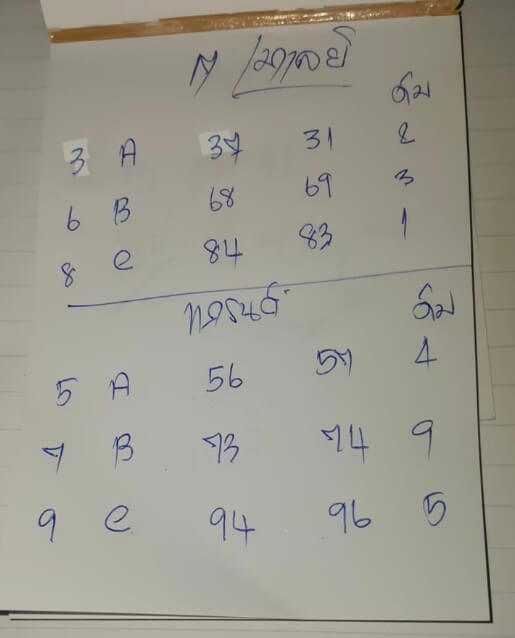 มาลัย
ดับ
3 A 37 31 2
6 B 68 69 3
8 C 84 83 1
ดับ
5 A 56 57 4
7 B 73 74 9
9 C 94 96 5